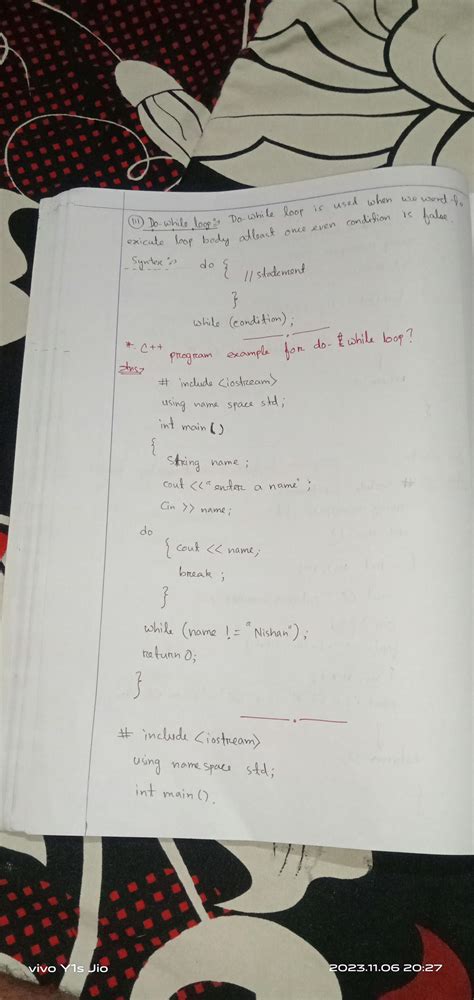 (iii) Do-while loop :- Do-while loop is used when we want to
exicute loop body atleast once even condition is false.
Syntex :-
do {
// statement
}
while (condition);
* C++ program example for do-while loop?
Ans>
# include <iostream>
using name space std;
int main ()
{
String name ;
cout << "enter a name" ;
Cin >> name;
do
{ cout << name;
break ;
}
while (name != "Nishan");
return 0;
}
# include <iostream>
using name space std;
int main ().
vivo Y1s Jio
2023.11.06 20:27